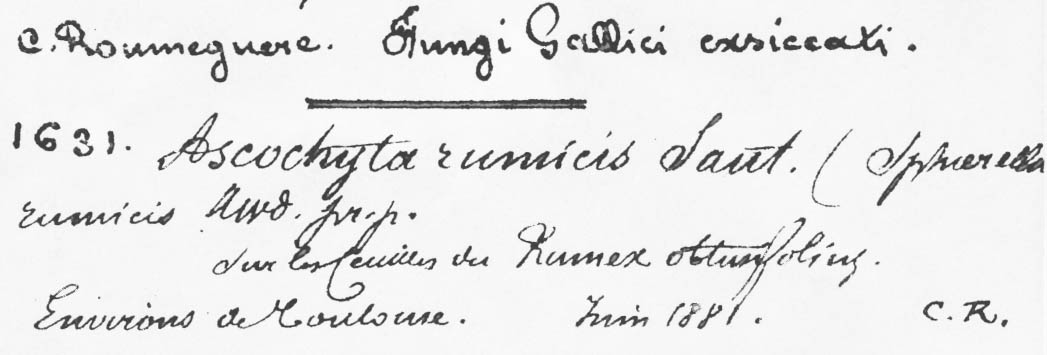 C. Roumeguere. Fungi Gallici exsiccati.
1631. Ascochyta rumicis Saut. (Sphaerella
rumicis Awd. pr. p.
Sur les feuilles du Rumex obtusifolius.
Environs de Toulouse. Juin 1881. C. R.